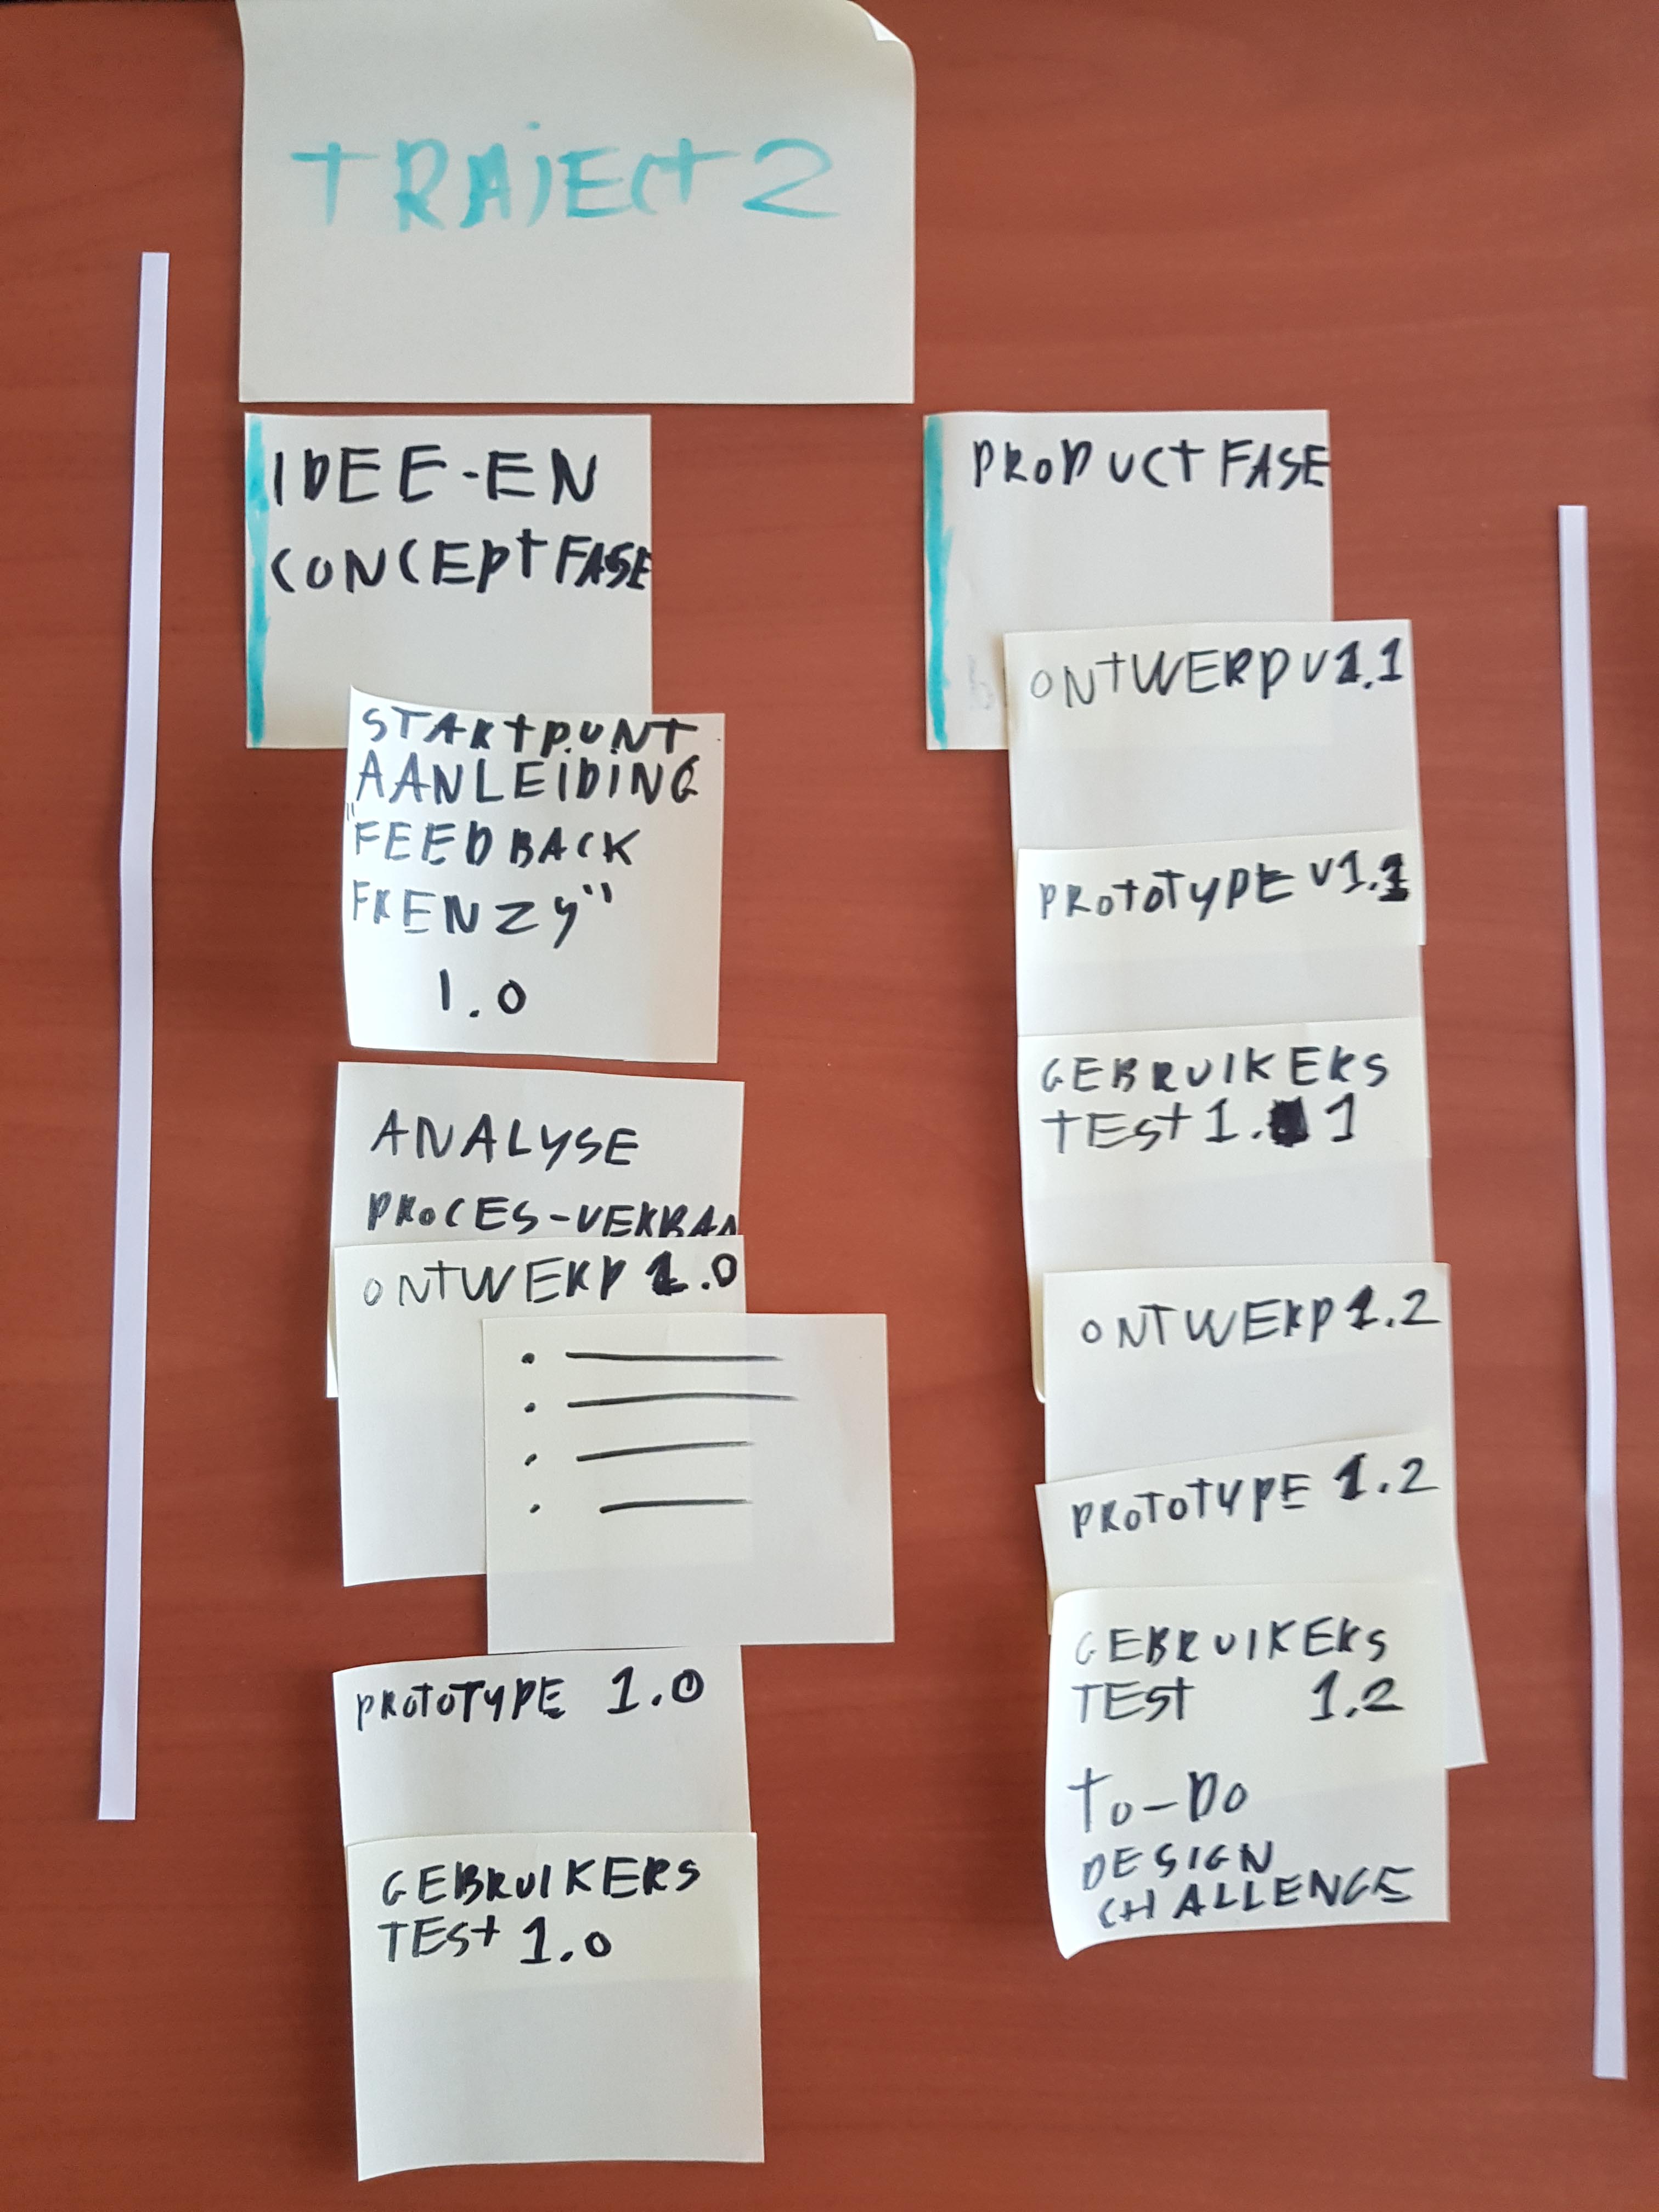 TRAJECT 2
IDEE-EN
CONCEPTFASE
STARTPUNT
AANLEIDING
"FEEDBACK
FRENZY"
1.0
ANALYSE
PROCES-VERBAA
ONTWERP 1.0
PROTOTYPE 1.0
GEBRUIKERS
TEST 1.0
PRODUCTFASE
ONTWERP V1.1
PROTOTYPE V1.1
GEBRUIKERS
TEST 1.1
ONTWERP 1.2
PROTOTYPE 1.2
GEBRUIKERS
TEST 1.2
TO-DO
DESIGN
CHALLENGE